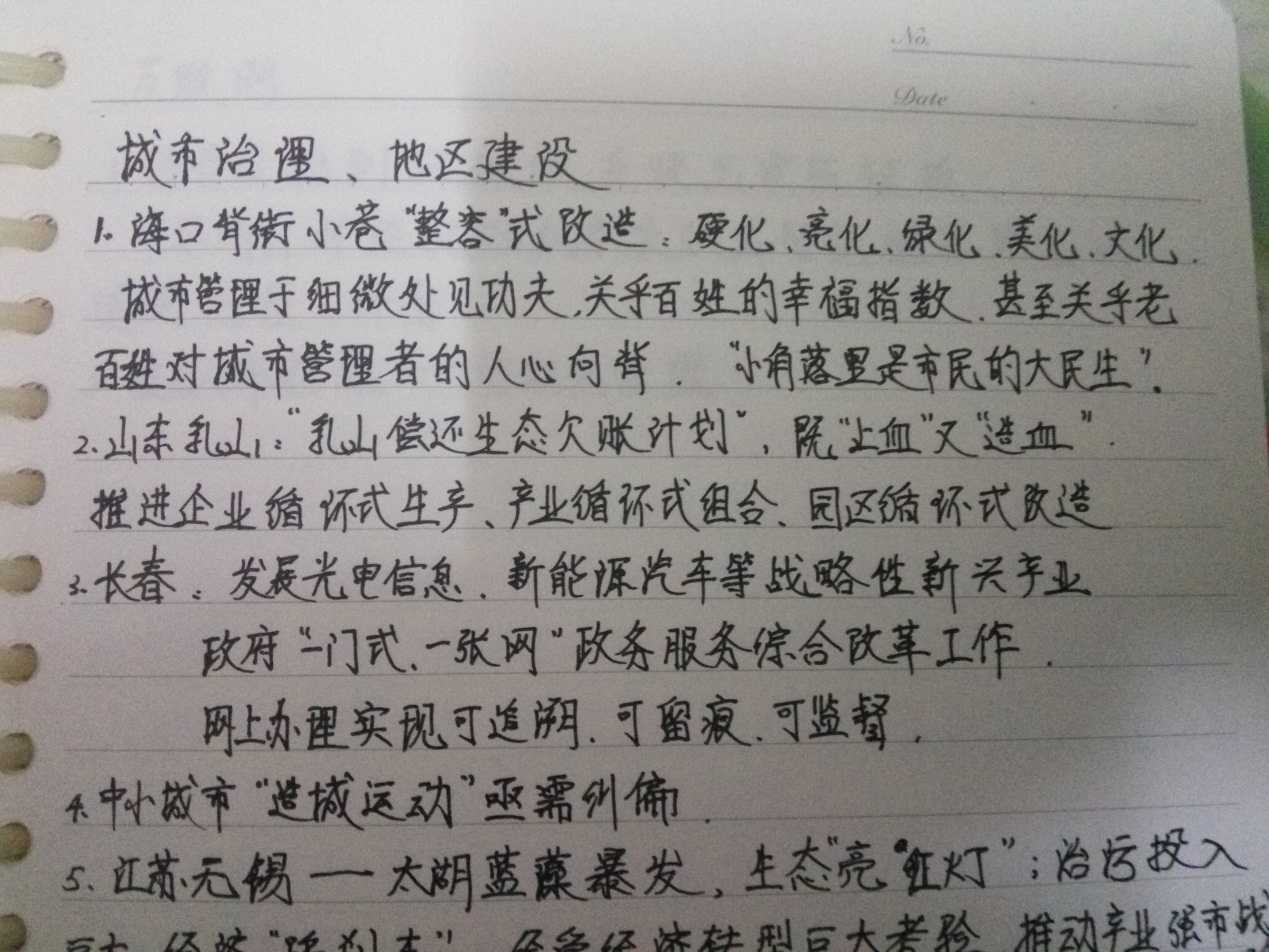 No.
Date
城市治理、地区建设
1. 海口背街小巷“整容”式改造：硬化、亮化、绿化、美化、文化.
城市管理于细微处见功夫,关乎百姓的幸福指数.甚至关乎老
百姓对城市管理者的人心向背. “小角落里是市民的大民生”.
2. 山东乳山：“乳山偿还生态欠账计划”, 既“止血”又“造血”.
推进企业循环式生产、产业循环式组合、园区循环式改造
3. 长春：发展光电信息、新能源汽车等战略性新兴产业
政府“一门式、一张网”政务服务综合改革工作.
网上办理实现可追溯.可留痕.可监督.
4. 中小城市“造城运动”亟需纠偏.
5. 江苏无锡——太湖蓝藻暴发, 生态“亮红灯”；治污投入
经济转型巨大考验 推动产业强市战